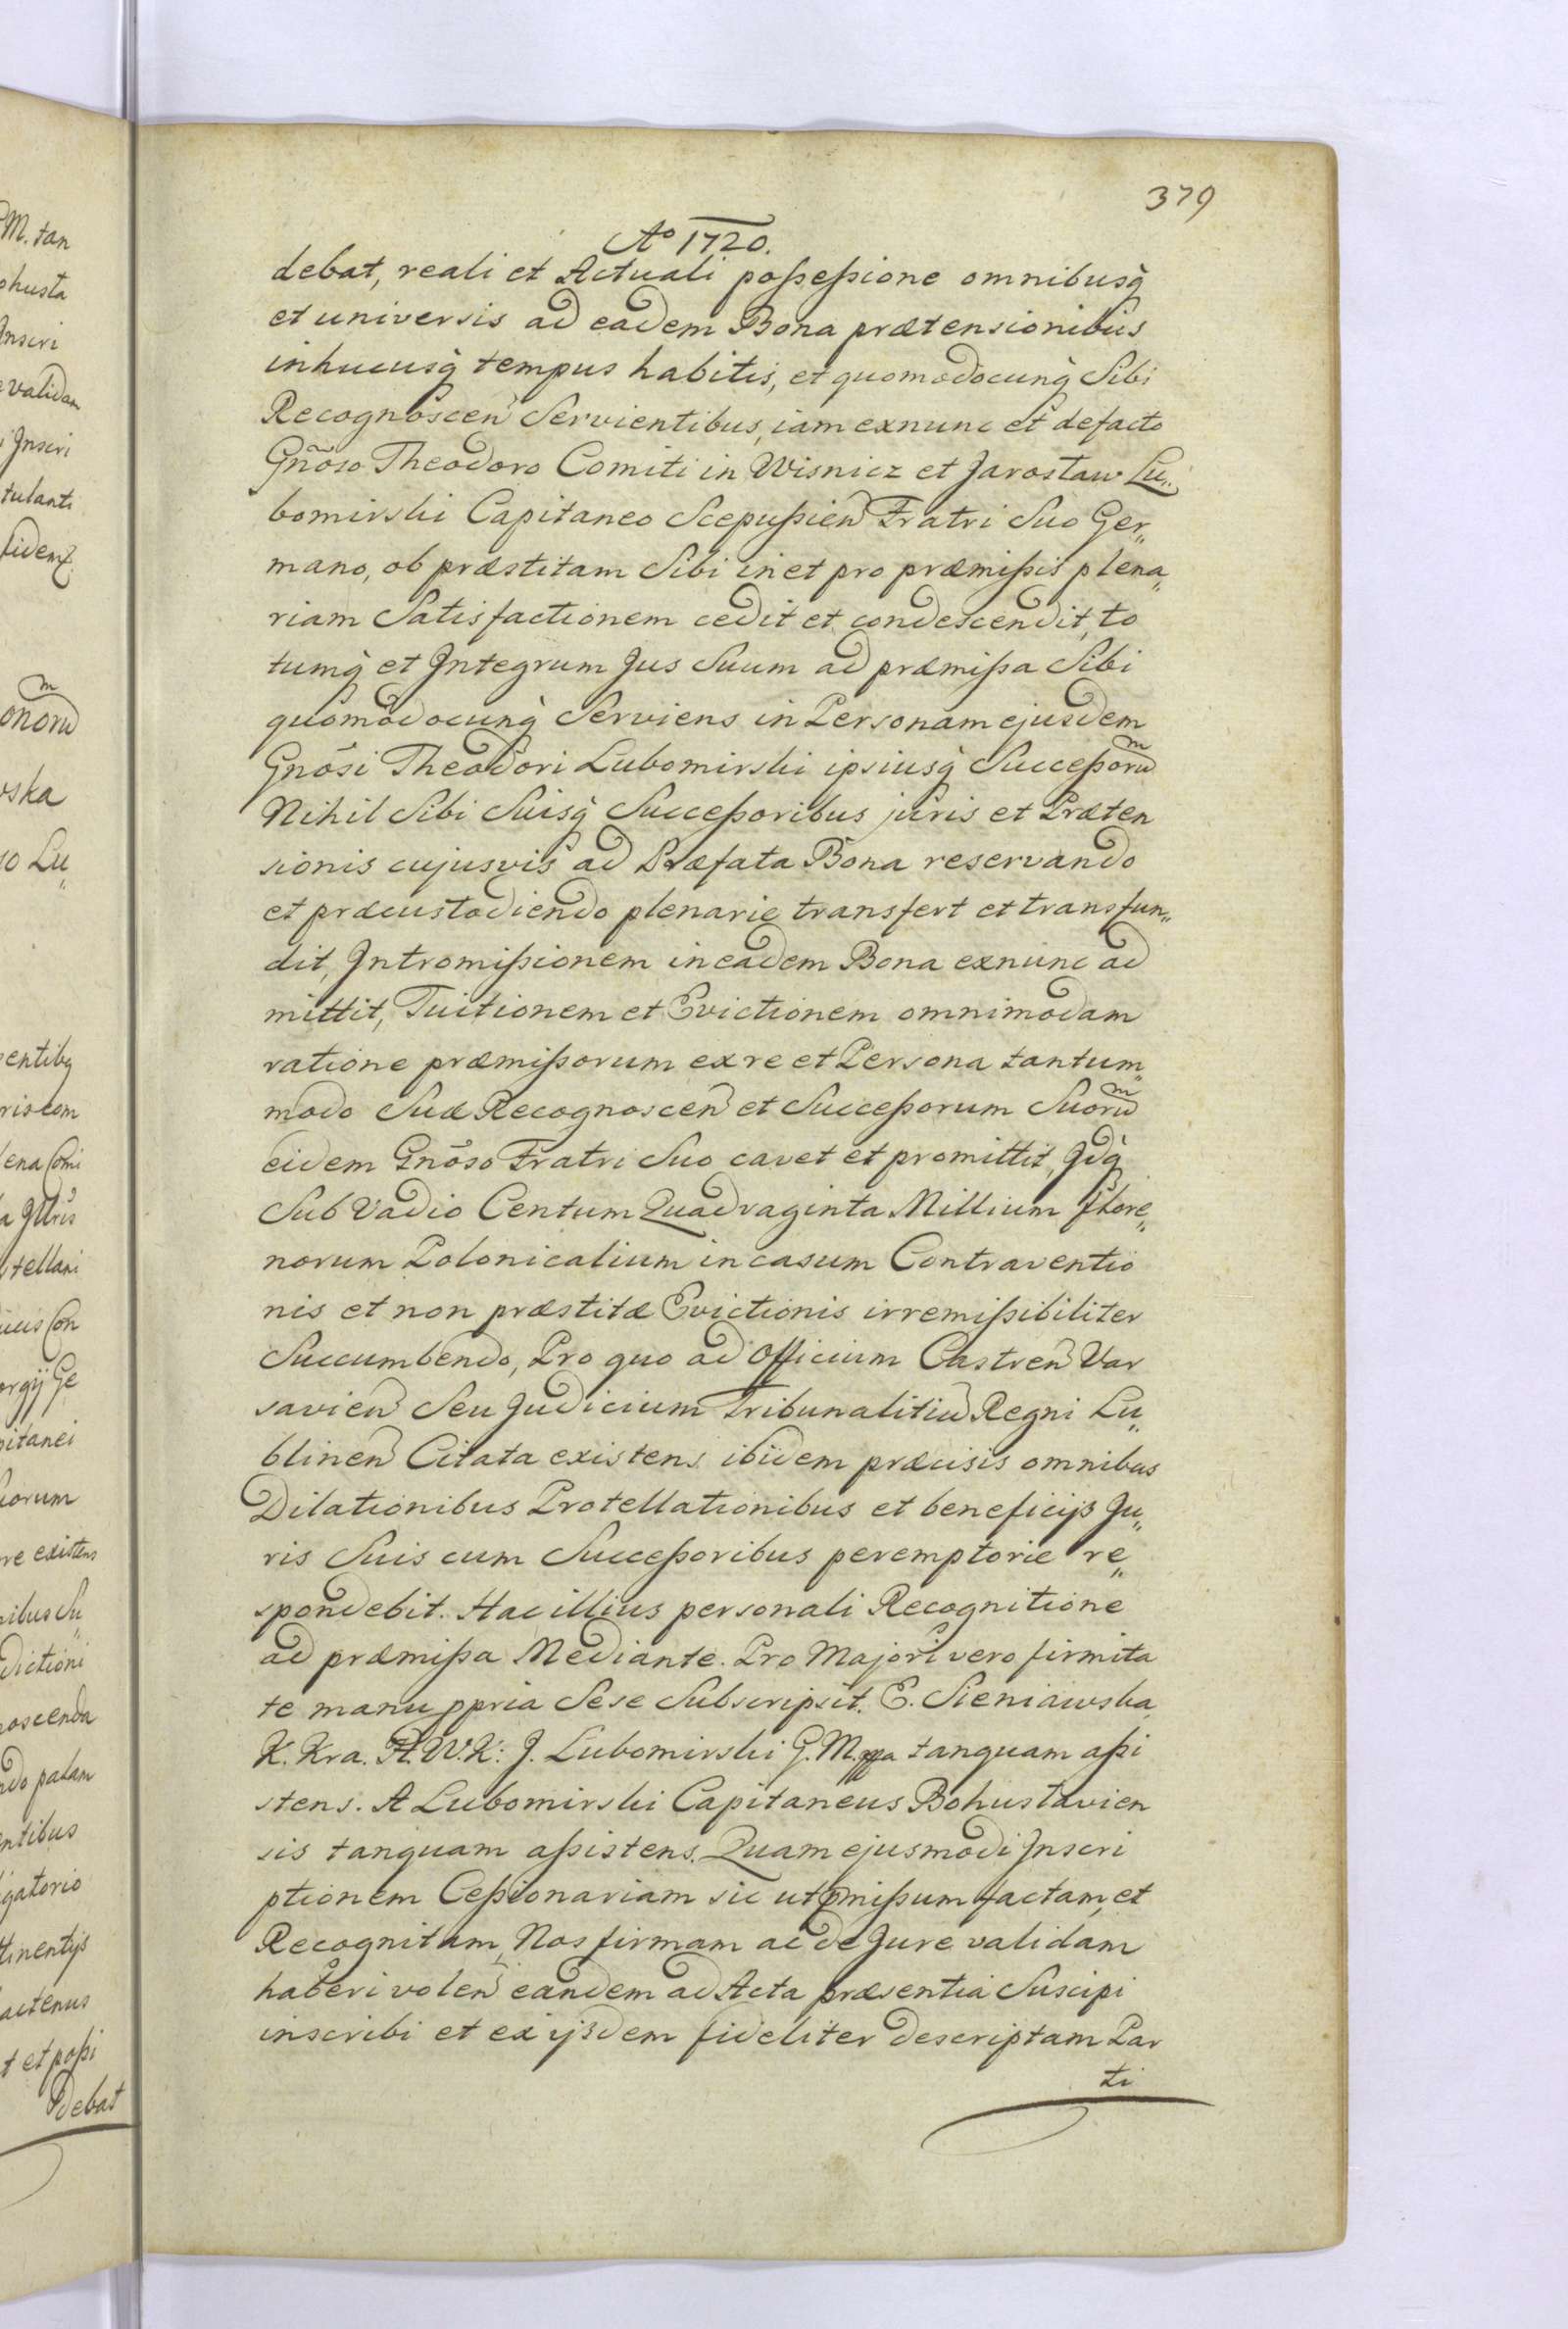 379
Aº 1720.
debat, reali et Actuali poſseſsione omnibusq̀
et universis ad eadem Bona prætensionibus
inhucusq̀ tempus habitis, et quomodocunq̀ Sibi
Recognoscen̄ Servientibus, iam exnunc et defacto
Gn̄oso Theodoro Comiti in Wisnicz et Jarosław Lu„
bomirski Capitaneo Scepuſsien̄ Fratri Suo Ger„
mano, ob præstitam Sibi in et pro præmiſsis plena„
riam Satisfactionem cedit et condescendit, to
tumq̀ et Integrum Jus Suum ad præmiſsa Sibi
quomodocunq̀ Serviens in Personam ejusdem
Gnōsi Theodori Lubomirski ipsiusq̀ Succeſsorūm
Nihil Sibi Suisq̀ Succeſsoribus juris et Præten
sionis cujusvis ad Præfata Bona reservando
et præcustodiendo plenarie transfert et transfun„
dit, Intromiſsionem in eadem Bona exnunc ad
mittit, Tuitionem et Evictionem omnimodam
ratione præmiſsorum ex re et Persona tantum„
modo Suæ Recognoscen̄ et Succeſsorum Suorūm
eidem Gnōso Fratri Suo cavet et promittit, Idq̀
Sub Vadio Centum Quadraginta Millium flore„
norum Polonicalium in casum Contraventio
nis et non præstitæ Evictionis irremiſsibiliter
Succumbendo, Pro quo ad Officium Castren̄ Var
savien̄ Seu Judicium Tribunalitiū Regni Lu„
blinen̄ Citata existens ibidem præcisis omnibus
Dilationibus Protellationibus et beneficijs Ju„
ris Suis cum Succeſsoribus peremptorie re„
spondebit. Hac illius personali Recognitione
ad præmiſsa Mediante. Pro Majori vero firmita
te manu ppria Sese Subscripsit. E. Sieniawska
K. Kra. H. W. K: J. Lubomirski G. M. mppa tanquam aſsi
stens. A Lubomirski Capitaneus Bohuslavien
sis tanquam aſsistens. Quam ejusmodi Inscri
ptionem Ceſsionariam sic ut pmiſsum factam, et
Recognitam, Nos firmam ac de Jure validam
haberi volen̄ eandem ad Acta præsentia Suscipi
inscribi et ex ijsdem fideliter descriptam Par
ti